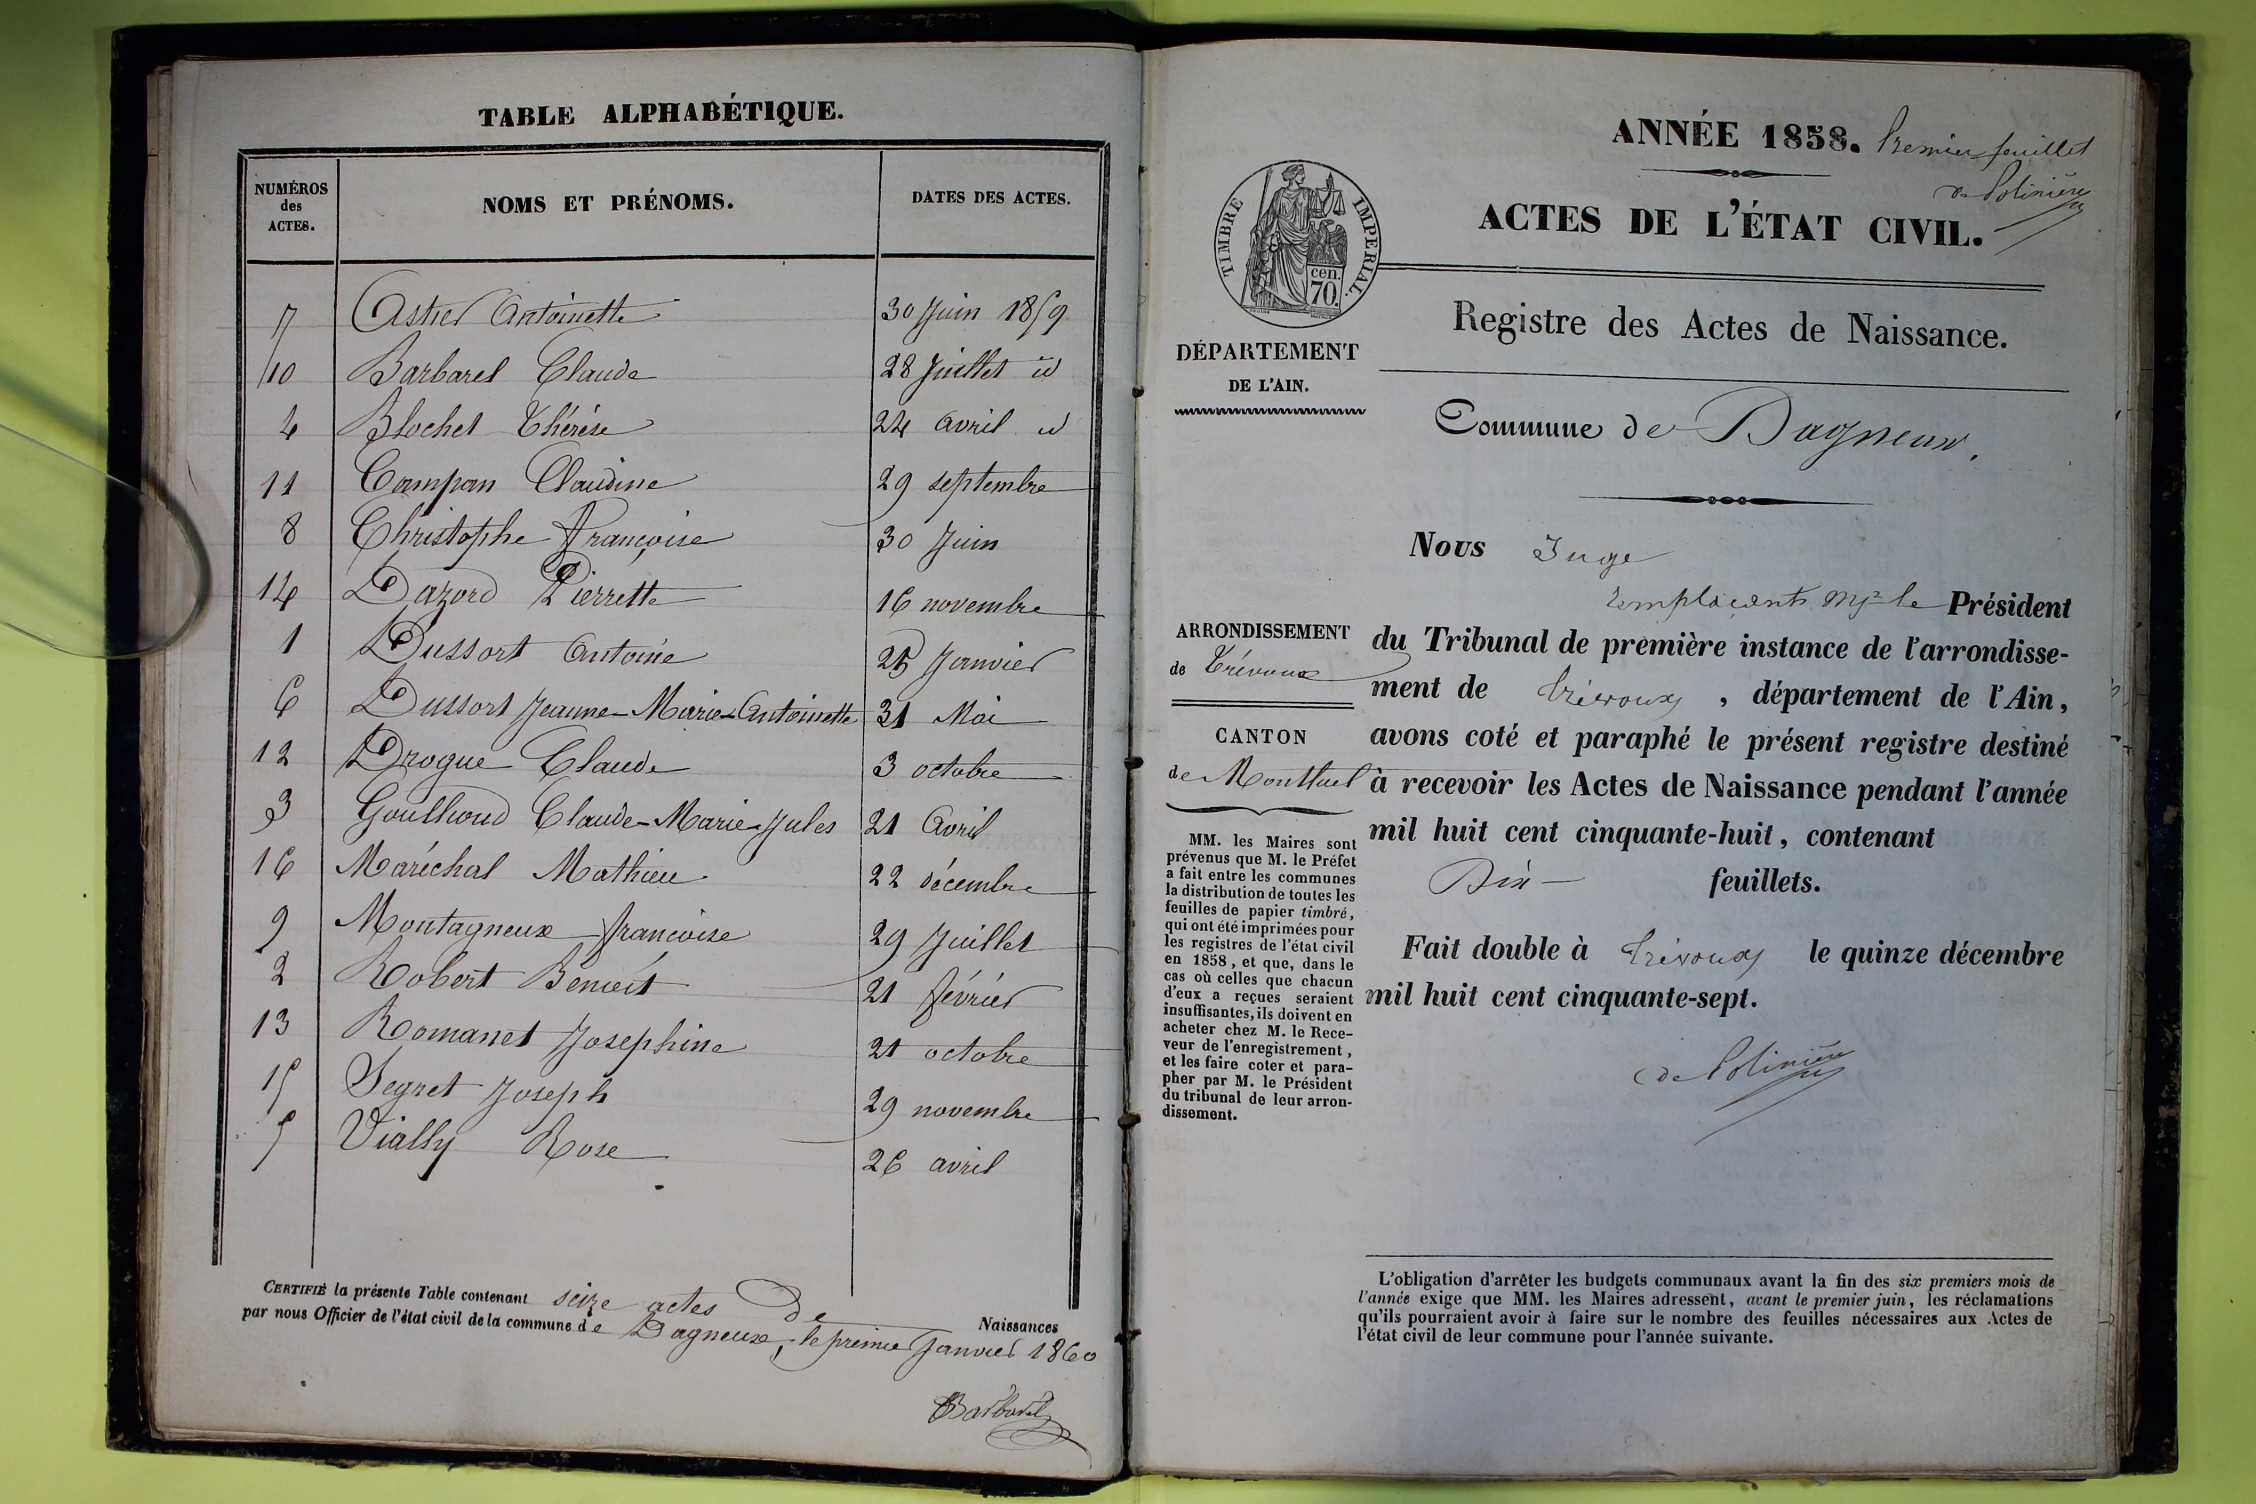 TABLE ALPHABÉTIQUE.
NUMÉROS des ACTES. NOMS ET PRÉNOMS. DATES DES ACTES.
7 Astier Antoinette 30 Juin 1859
10 Barbarel Claude 28 Juillet id
4 Blochet Thérèse 24 avril id
11 Campan Claudine 29 septembre
8 Christophe Françoise 30 Juin
14 Dazord Pierrette 16 novembre
1 Dussort Antoine 25 Janvier
6 Dussort Jeanne-Marie-Antoinette 31 Mai
12 Drogue Claude 3 octobre
3 Goulhoud Claude-Marie-Jules 21 Avril
16 Maréchal Mathieu 22 décembre
9 Montagneux françoise 29 Juillet
2 Robert Benoît 21 février
13 Romanet Josephine 21 octobre
15 Segret Joseph 29 novembre
5 Vially Rose 26 avril
CERTIFIÉ la présente Table contenant seize actes de Naissances
par nous Officier de l'état civil de la commune de Dagneux, le premier Janvier 1860
Barbarel
ANNÉE 1858. Premier feuillet
de Polinière
ACTES DE L'ÉTAT CIVIL.
TIMBRE IMPERIAL.
cen.
70.
Registre des Actes de Naissance.
DÉPARTEMENT
DE L'AIN.
Commune de Dagneux.
ARRONDISSEMENT
de Trévoux
CANTON
de Montluel
MM. les Maires sont
prévenus que M. le Préfet
a fait entre les communes
la distribution de toutes les
feuilles de papier timbré,
qui ont été imprimées pour
les registres de l'état civil
en 1858, et que, dans le
cas où celles que chacun
d'eux a reçues seraient
insuffisantes, ils doivent en
acheter chez M. le Rece-
veur de l'enregistrement,
et les faire coter et para-
pher par M. le Président
du tribunal de leur arron-
dissement.
Nous Juge
remplaçant Mr le Président
du Tribunal de première instance de l'arrondisse-
ment de Trévoux, département de l'Ain,
avons coté et paraphé le présent registre destiné
à recevoir les Actes de Naissance pendant l'année
mil huit cent cinquante-huit, contenant
Dix feuillets.
Fait double à Trévoux le quinze décembre
mil huit cent cinquante-sept.
de Polinière
L'obligation d'arrêter les budgets communaux avant la fin des six premiers mois de
l'année exige que MM. les Maires adressent, avant le premier juin, les réclamations
qu'ils pourraient avoir à faire sur le nombre des feuilles nécessaires aux Actes de
l'état civil de leur commune pour l'année suivante.